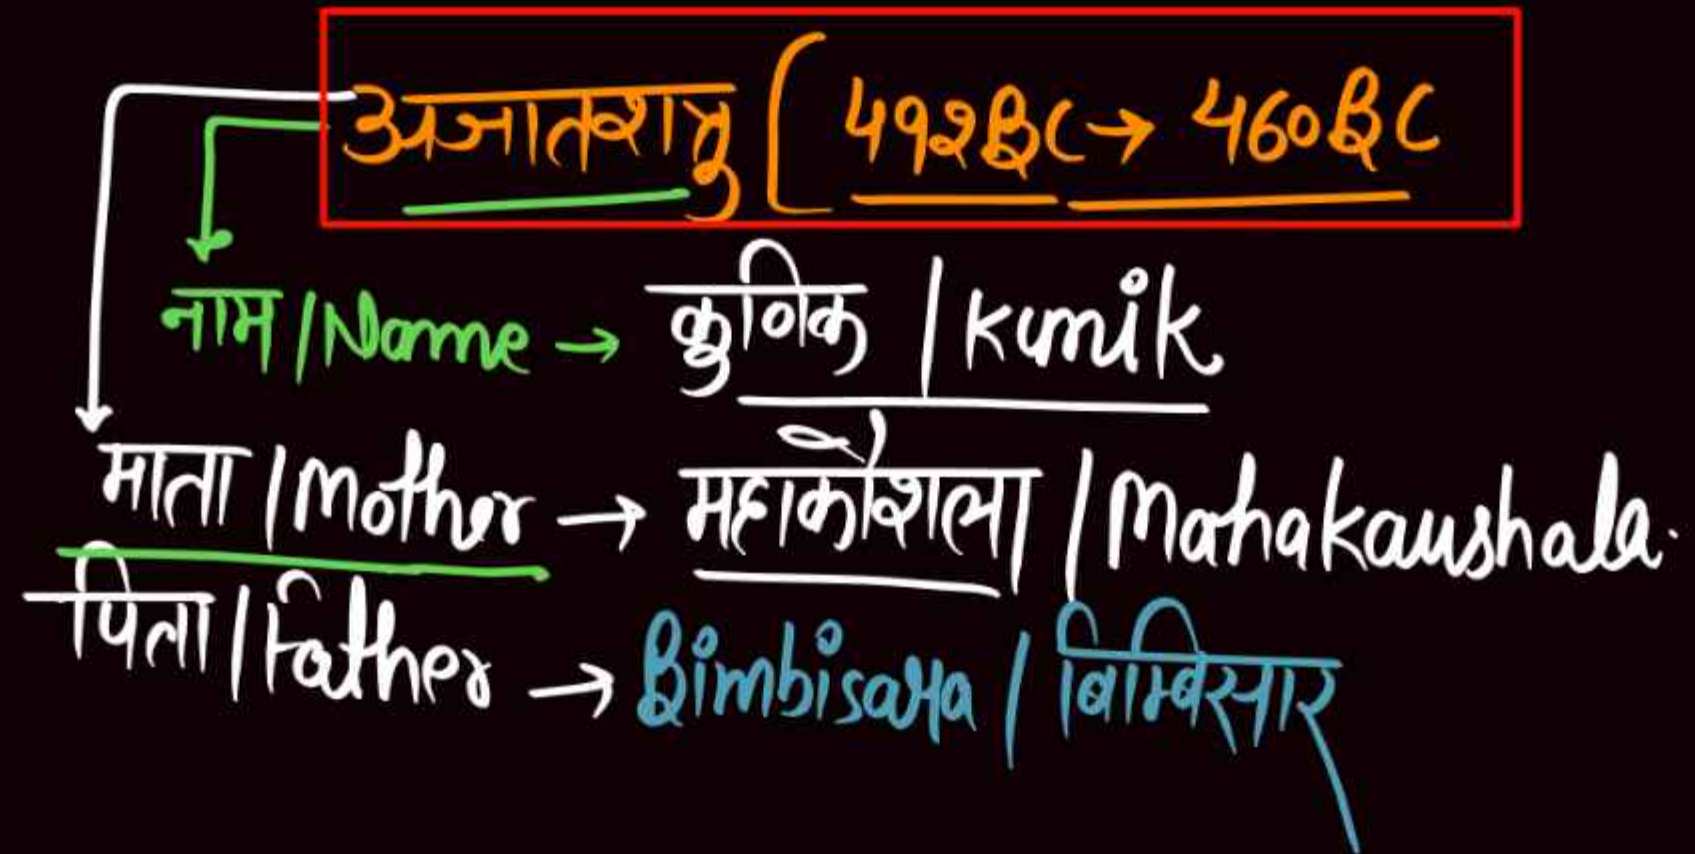 अजातशत्रु ( 492BC → 460BC
नाम / Name → कुणिक / Kunik
माता / Mother → महाकौशला / Mahakaushala.
पिता / Father → Bimbisara / बिम्बिसार